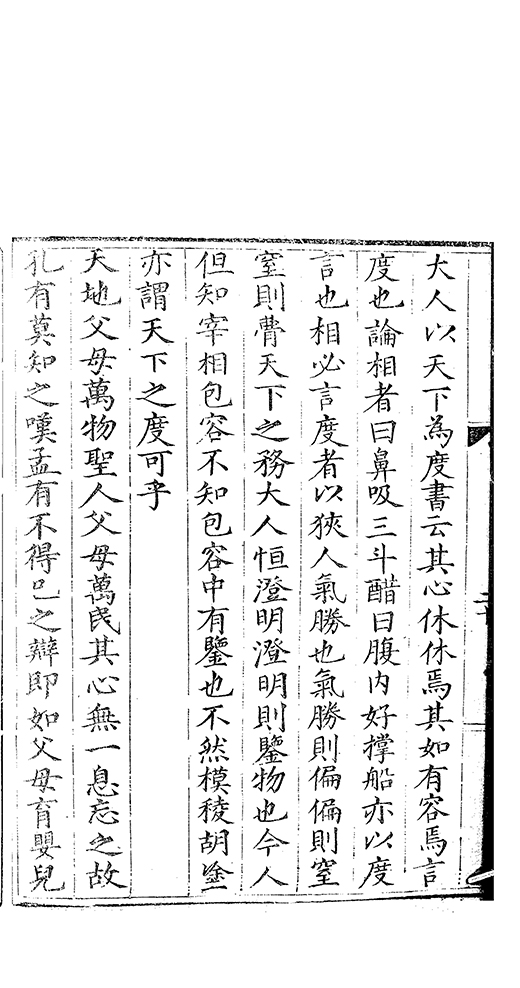 大人以天下為度書云其心休休焉其如有容焉言
度也論相者曰鼻吸三斗醋曰腹内好撐船亦以度
言也相必言度者以狹人氣勝也氣勝則偏偏則窒
窒則瞢天下之務大人恒澄明澄明則鑒物也今人
但知宰相包容不知包容中有鑒也不然模稜胡塗
亦謂天下之度可乎
天地父母萬物聖人父母萬民其心無一息忘之故
孔有莫知之嘆孟有不得已之辯即如父母育嬰兒